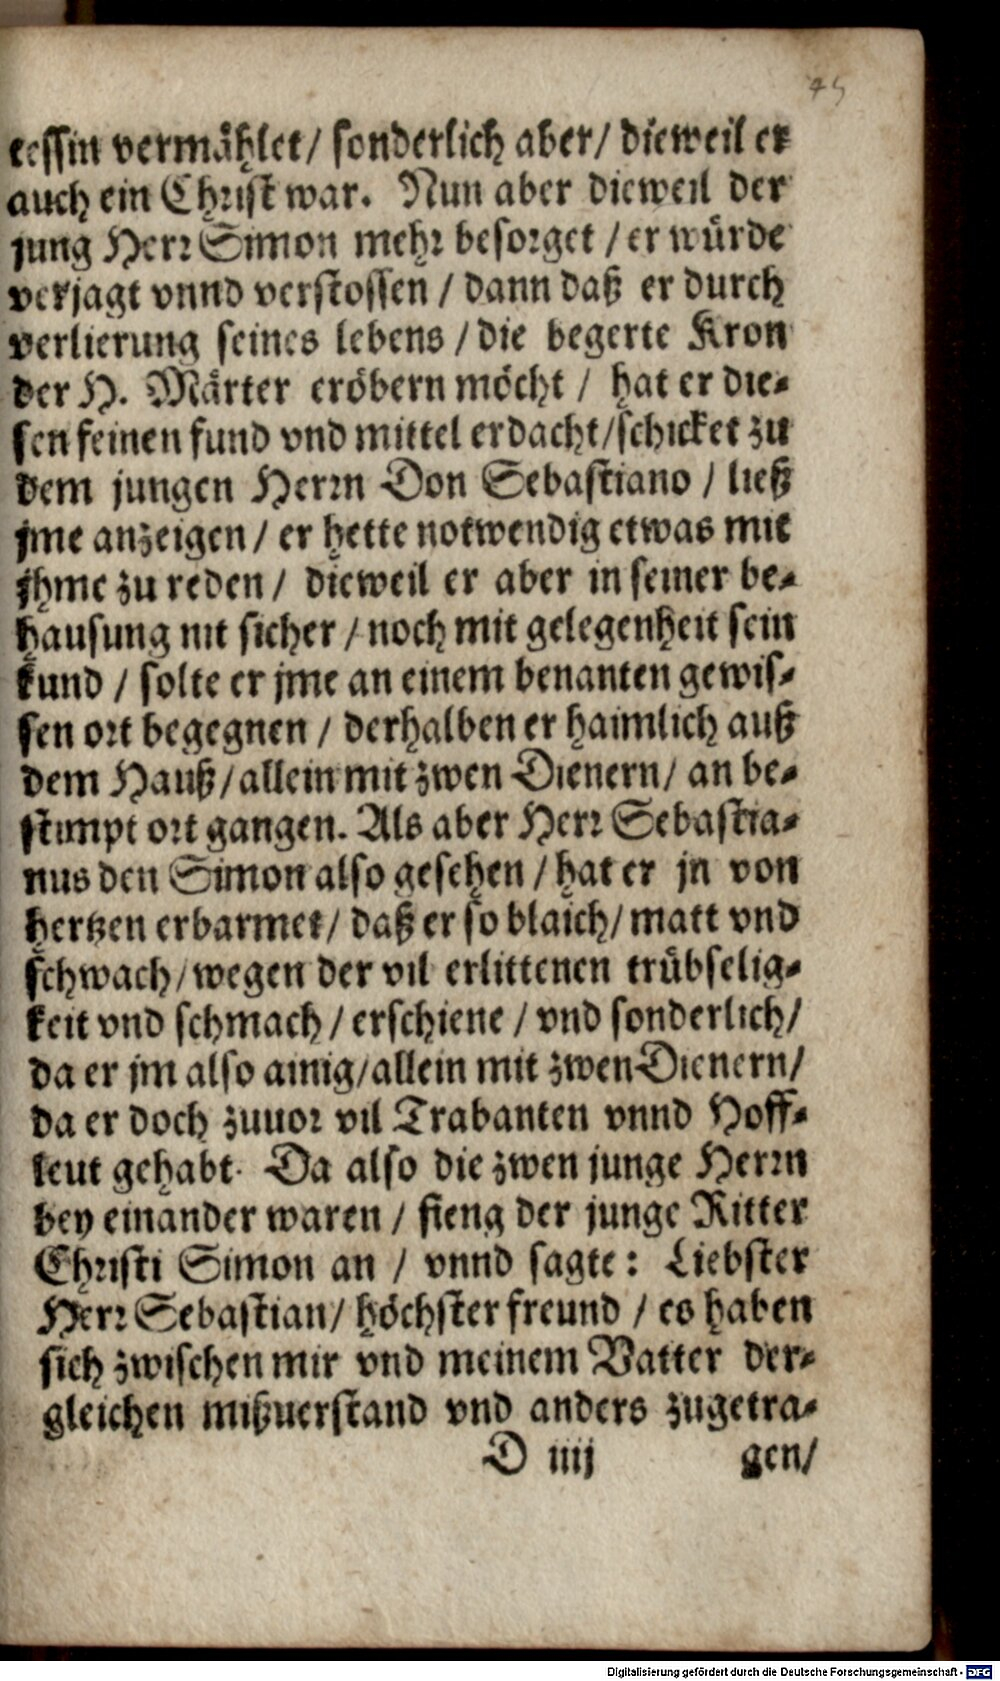 45
tessin vermählet/ sonderlich aber/ dieweil er
auch ein Christ war. Nun aber dieweil der
jung Herr Simon mehr besorget / er würde
verjagt vnnd verstossen / dann daß er durch
verlierung seines lebens / die begerte Kron
der H. Märter eröbern möcht / hat er die-
sen feinen fund vnd mittel erdacht/schicket zu
dem jungen Herrn Don Sebastiano / ließ
jme anzeigen / er hette notwendig etwas mit
jhme zu reden / dieweil er aber in seiner be-
hausung nit sicher / noch mit gelegenheit sein
kund / solte er jme an einem benanten gewis-
sen ort begegnen / derhalben er haimlich auß
dem Hauß/allein mit zwen Dienern/ an be-
stimpt ort gangen. Als aber Herr Sebastia-
nus den Simon also gesehen / hat er jn von
hertzen erbarmet/ daß er so blaich/ matt vnd
schwach/wegen der vil erlittenen trübselig-
keit vnd schmach / erschiene / vnd sonderlich/
da er jm also ainig/allein mit zwen Dienern/
da er doch zuuor vil Trabanten vnnd Hoff-
leut gehabt. Da also die zwen junge Herrn
bey einander waren / fieng der junge Ritter
Christi Simon an / vnnd sagte: Liebster
Herr Sebastian/ höchster freund / es haben
sich zwischen mir vnd meinem Vatter der-
gleichen mißuerstand vnd anders zugetra-
D iiij gen/
Digitalisierung gefördert durch die Deutsche Forschungsgemeinschaft - DFG